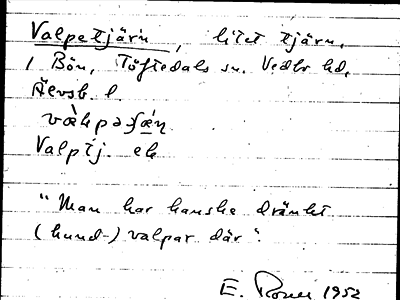 Valpetjärn, litet tjärn,
i Bön, Töftedals sn. Vedbo hd,
Älvsb. l.
Valptj. ek
"Man har kanske dränkt
(hund-) valpar där".
E. 1952